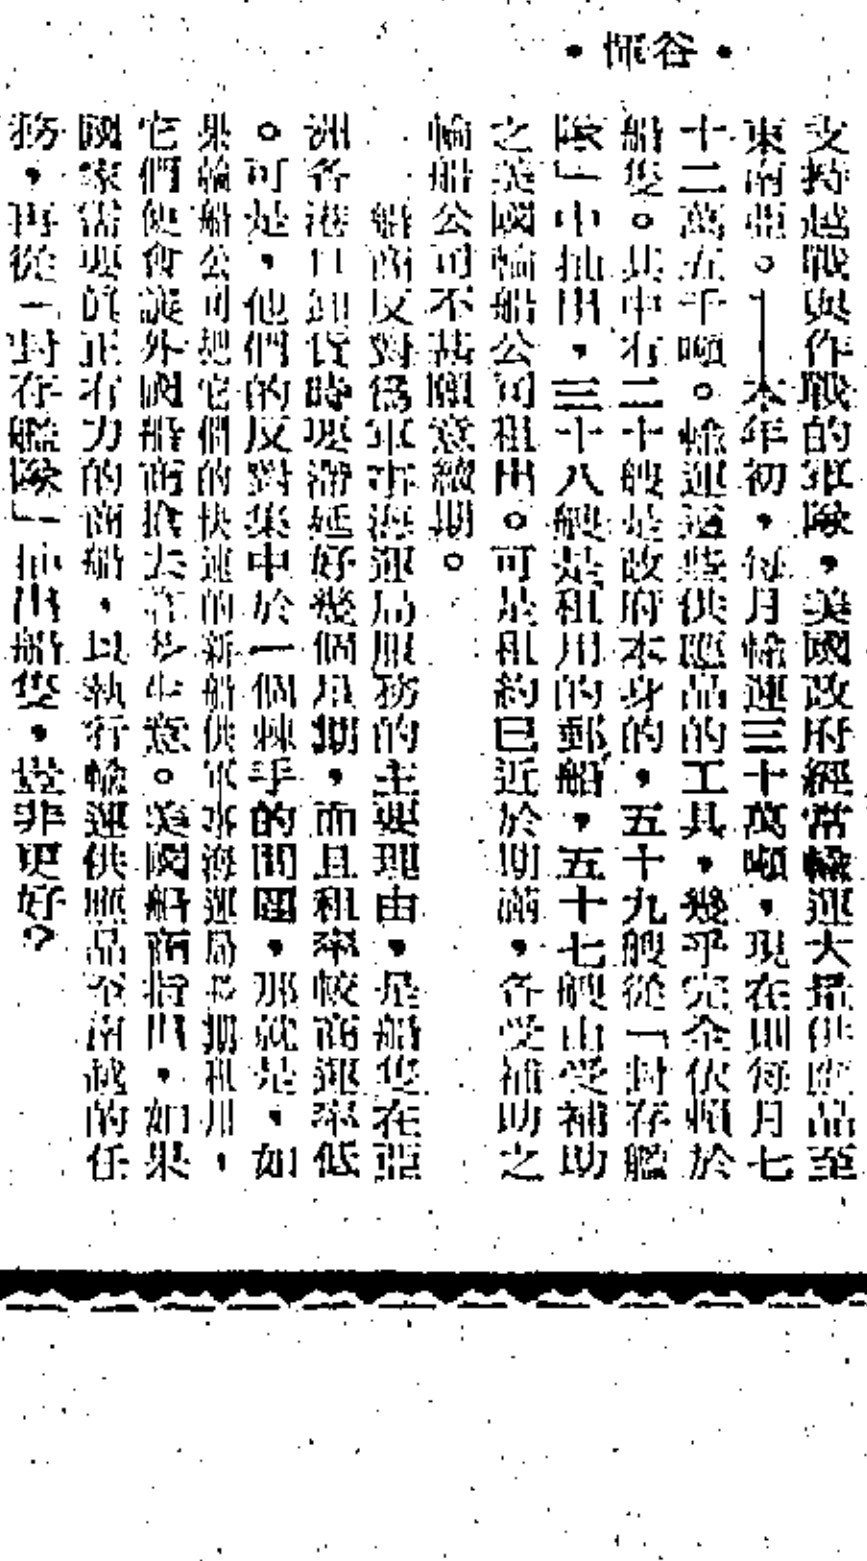 •惲谷•
支持越戰與作戰的軍隊，美國政府經常輸運大量供應品至
東南亞。——本年初，每月輸運三十萬噸，現在則每月七
十二萬五千噸。輸運這些供應品的工具，幾乎完全依賴於
船隻。其中有二十艘是政府本身的，五十九艘從「封存艦
隊」中抽出，三十八艘是租用的郵船，五十七艘由受補助
之美國輪船公司租出。可是租約已近於期滿，各受補助之
輪船公司不甚願意續期。
船商反對爲軍事海運局服務的主要理由，是船隻在亞
洲各港口卸貨時要滯延好幾個星期，而且租率較商運率低
。可是，他們的反對集中於一個棘手的問題，那就是，如
果輪船公司把它們的快速的新船供軍事海運局長期租用，
它們便會讓外國船商搶去許多生意。美國船商指出，如果
國家需要眞正有力的商船，以執行輸運供應品至南越的任
務，再從「封存艦隊」抽出船隻，豈非更好？